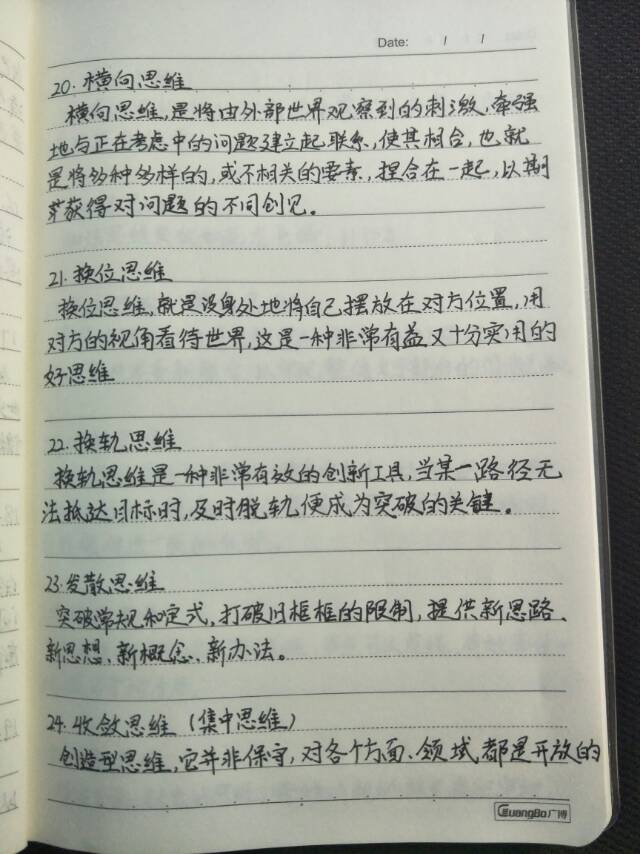 Date: / /
20.横向思维
横向思维,是将由外部世界观察到的刺激,牵强
地与正在考虑中的问题建立起联系,使其相合,也就
是将多种多样的,或不相关的要素,捏合在一起,以期
获得对问题的不同创见。
21.换位思维
换位思维,就是设身处地将自己摆放在对方位置,用
对方的视角看待世界,这是一种非常有益又十分实用的
好思维
22.换轨思维
换轨思维是一种非常有效的创新工具,当某一路径无
法抵达目标时,及时脱轨便成为突破的关键。
23.发散思维
突破常规和定式,打破旧框框的限制,提供新思路、
新思想、新概念、新办法。
24.收敛思维(集中思维)
创造型思维,它并非保守,对各个方面、领域,都是开放的
GuangBo广博